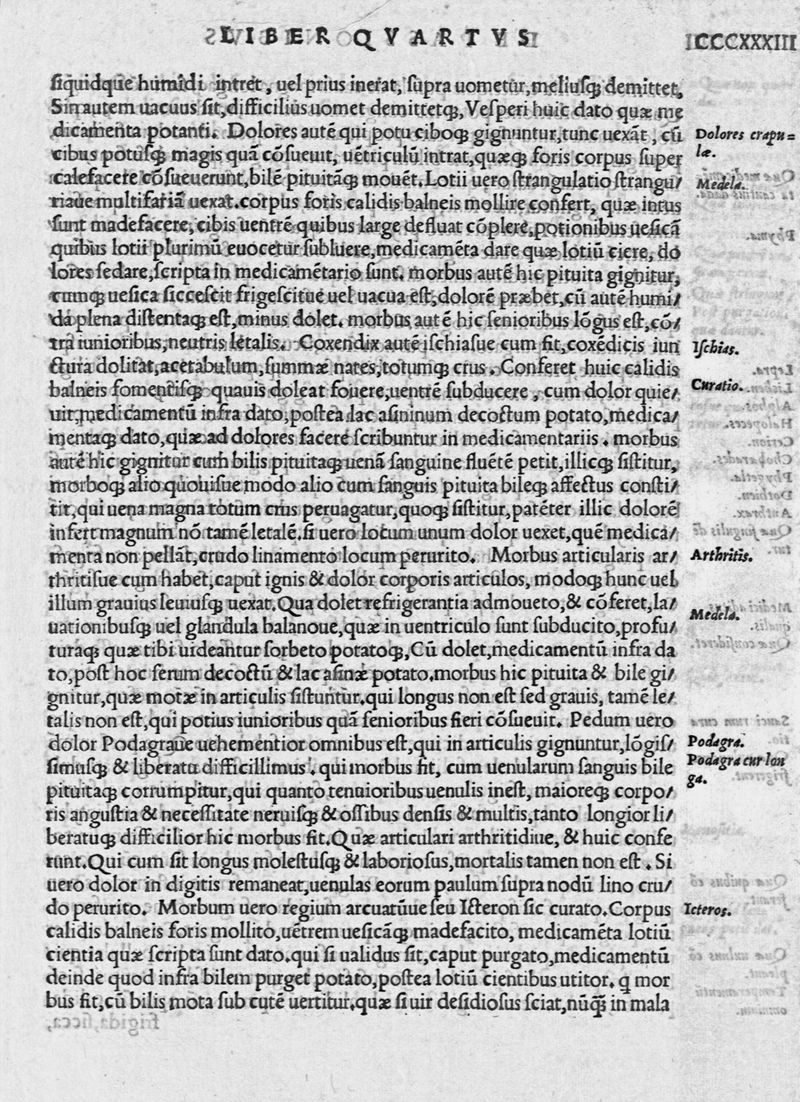 LIBER QVARTVS CCCCXXXIII
siquidque humidi intret, uel prius inerat, supra uometur, meliusq́; demittet,
Sin autem uacuus sit, difficilius uomet demittetq́;, Vesperi huic dato quæ me
dicamenta potanti. Dolores autẽ qui potu ciboq́; gignuntur, tunc uexãt, cũ
Dolores crapu=
læ.
cibus potusq́; magis quã cõsueuit, uẽtriculũ intrat, quæq́; foris corpus super
calefacere cõsueuerunt, bilẽ pituitãq́; mouẽt. Lotii uero strangulatio strangu/
Medela.
riaue multifariã uexat. corpus foris calidis balneis mollire confert, quæ intus
sunt madefacere, cibis uentrẽ quibus large defluat cõplere, potionibus uesicã
quibus lotii plurimũ euocetur subluere, medicamẽta dare quæ lotiũ ciere, do
lores sedare, scripta in medicamẽtario sunt. morbus autẽ hic pituita gignitur,
cumq́; uesica siccescit frigescitue uel uacua est, dolorẽ præbet, cũ autẽ humi/
da plena distentaq́; est, minus dolet. morbus aut ẽ hic senioribus lõgus est, cõ/
tra iunioribus, neutris letalis. Coxendix autẽ ischiasue cum fit, coxẽdicis iun
Ischias.
ctura dolitat, acetabulum, summæ nates, totumq́; crus. Conferet huic calidis
balneis fomentisq́; quauis doleat fouere, uentrẽ subducere, cum dolor quie/
Curatio.
uit, medicamentũ infra dato, postea lac asininum decoctum potato, medica/
mentaq́; dato, quæ ad dolores facere scribuntur in medicamentariis. morbus
autẽ hic gignitur cum bilis pituitaq́; uenã sanguine fluẽtẽ petit, illicq́; sistitur,
morboq́; alio quouisue modo alio cum sanguis pituita bileq́; affectus consti/
tit, qui uena magna totum crus peruagatur, quoq́; sistitur, patẽter illic dolorẽ
infert magnum nõ tamẽ letalẽ. si uero locum unum dolor uexet, quẽ medica/
menta non pellãt, crudo linamento locum perurito. Morbus articularis ar/
Arthritis.
thritisue cum habet, caput ignis & dolor corporis articulos, modoq́; hunc uel
illum grauius leuiusq́; uexat. Qua dolet refrigerantia admoueto, & cõferet, la/
Medela.
uationibusq́; uel glandula balanoue, quæ in uentriculo sunt subducito, profu/
turaq́; quæ tibi uideantur sorbeto potatoq́;, Cũ dolet, medicamentũ infra da
to, post hoc serum decoctũ & lac asinæ potato. morbus hic pituita & bile gi/
gnitur, quæ motæ in articulis sistuntur. qui longus non est sed grauis, tamẽ le/
talis non est, qui potius iunioribus quã senioribus fieri cõsueuit. Pedum uero
dolor Podagraue uehementior omnibus est, qui in articulis gignuntur, lõgis/
Podagra.
simusq́; & liberatu difficillimus. qui morbus fit, cum uenularum sanguis bile
Podagra cur lon
ga.
pituitaq́; corrumpitur, qui quanto tenuioribus uenulis inest, maioreq́; corpo/
ris angustia & necessitate neruisq́; & ossibus densis & multis, tanto longior li/
beratuq́; difficilior hic morbus fit. Quæ articulari arthritidiue, & huic confe
runt. Qui cum sit longus molestusq́; & laboriosus, mortalis tamen non est. Si
uero dolor in digitis remaneat, uenulas eorum paulum supra nodũ lino cru/
do perurito. Morbum uero regium arcuatũue seu Icteron sic curato. Corpus
Icteros.
calidis balneis foris mollito, uẽtrem uesicãq́; madefacito, medicamẽta lotiũ
cientia quæ scripta sunt dato. qui si ualidus sit, caput purgato, medicamentũ
deinde quod infra bilem purget potato, postea lotiũ cientibus utitor. q mor
bus fit, cũ bilis mota sub cutẽ uertitur. quæ si uir desidiosus sciat, nũq̃ in mala
frigida, sicca,